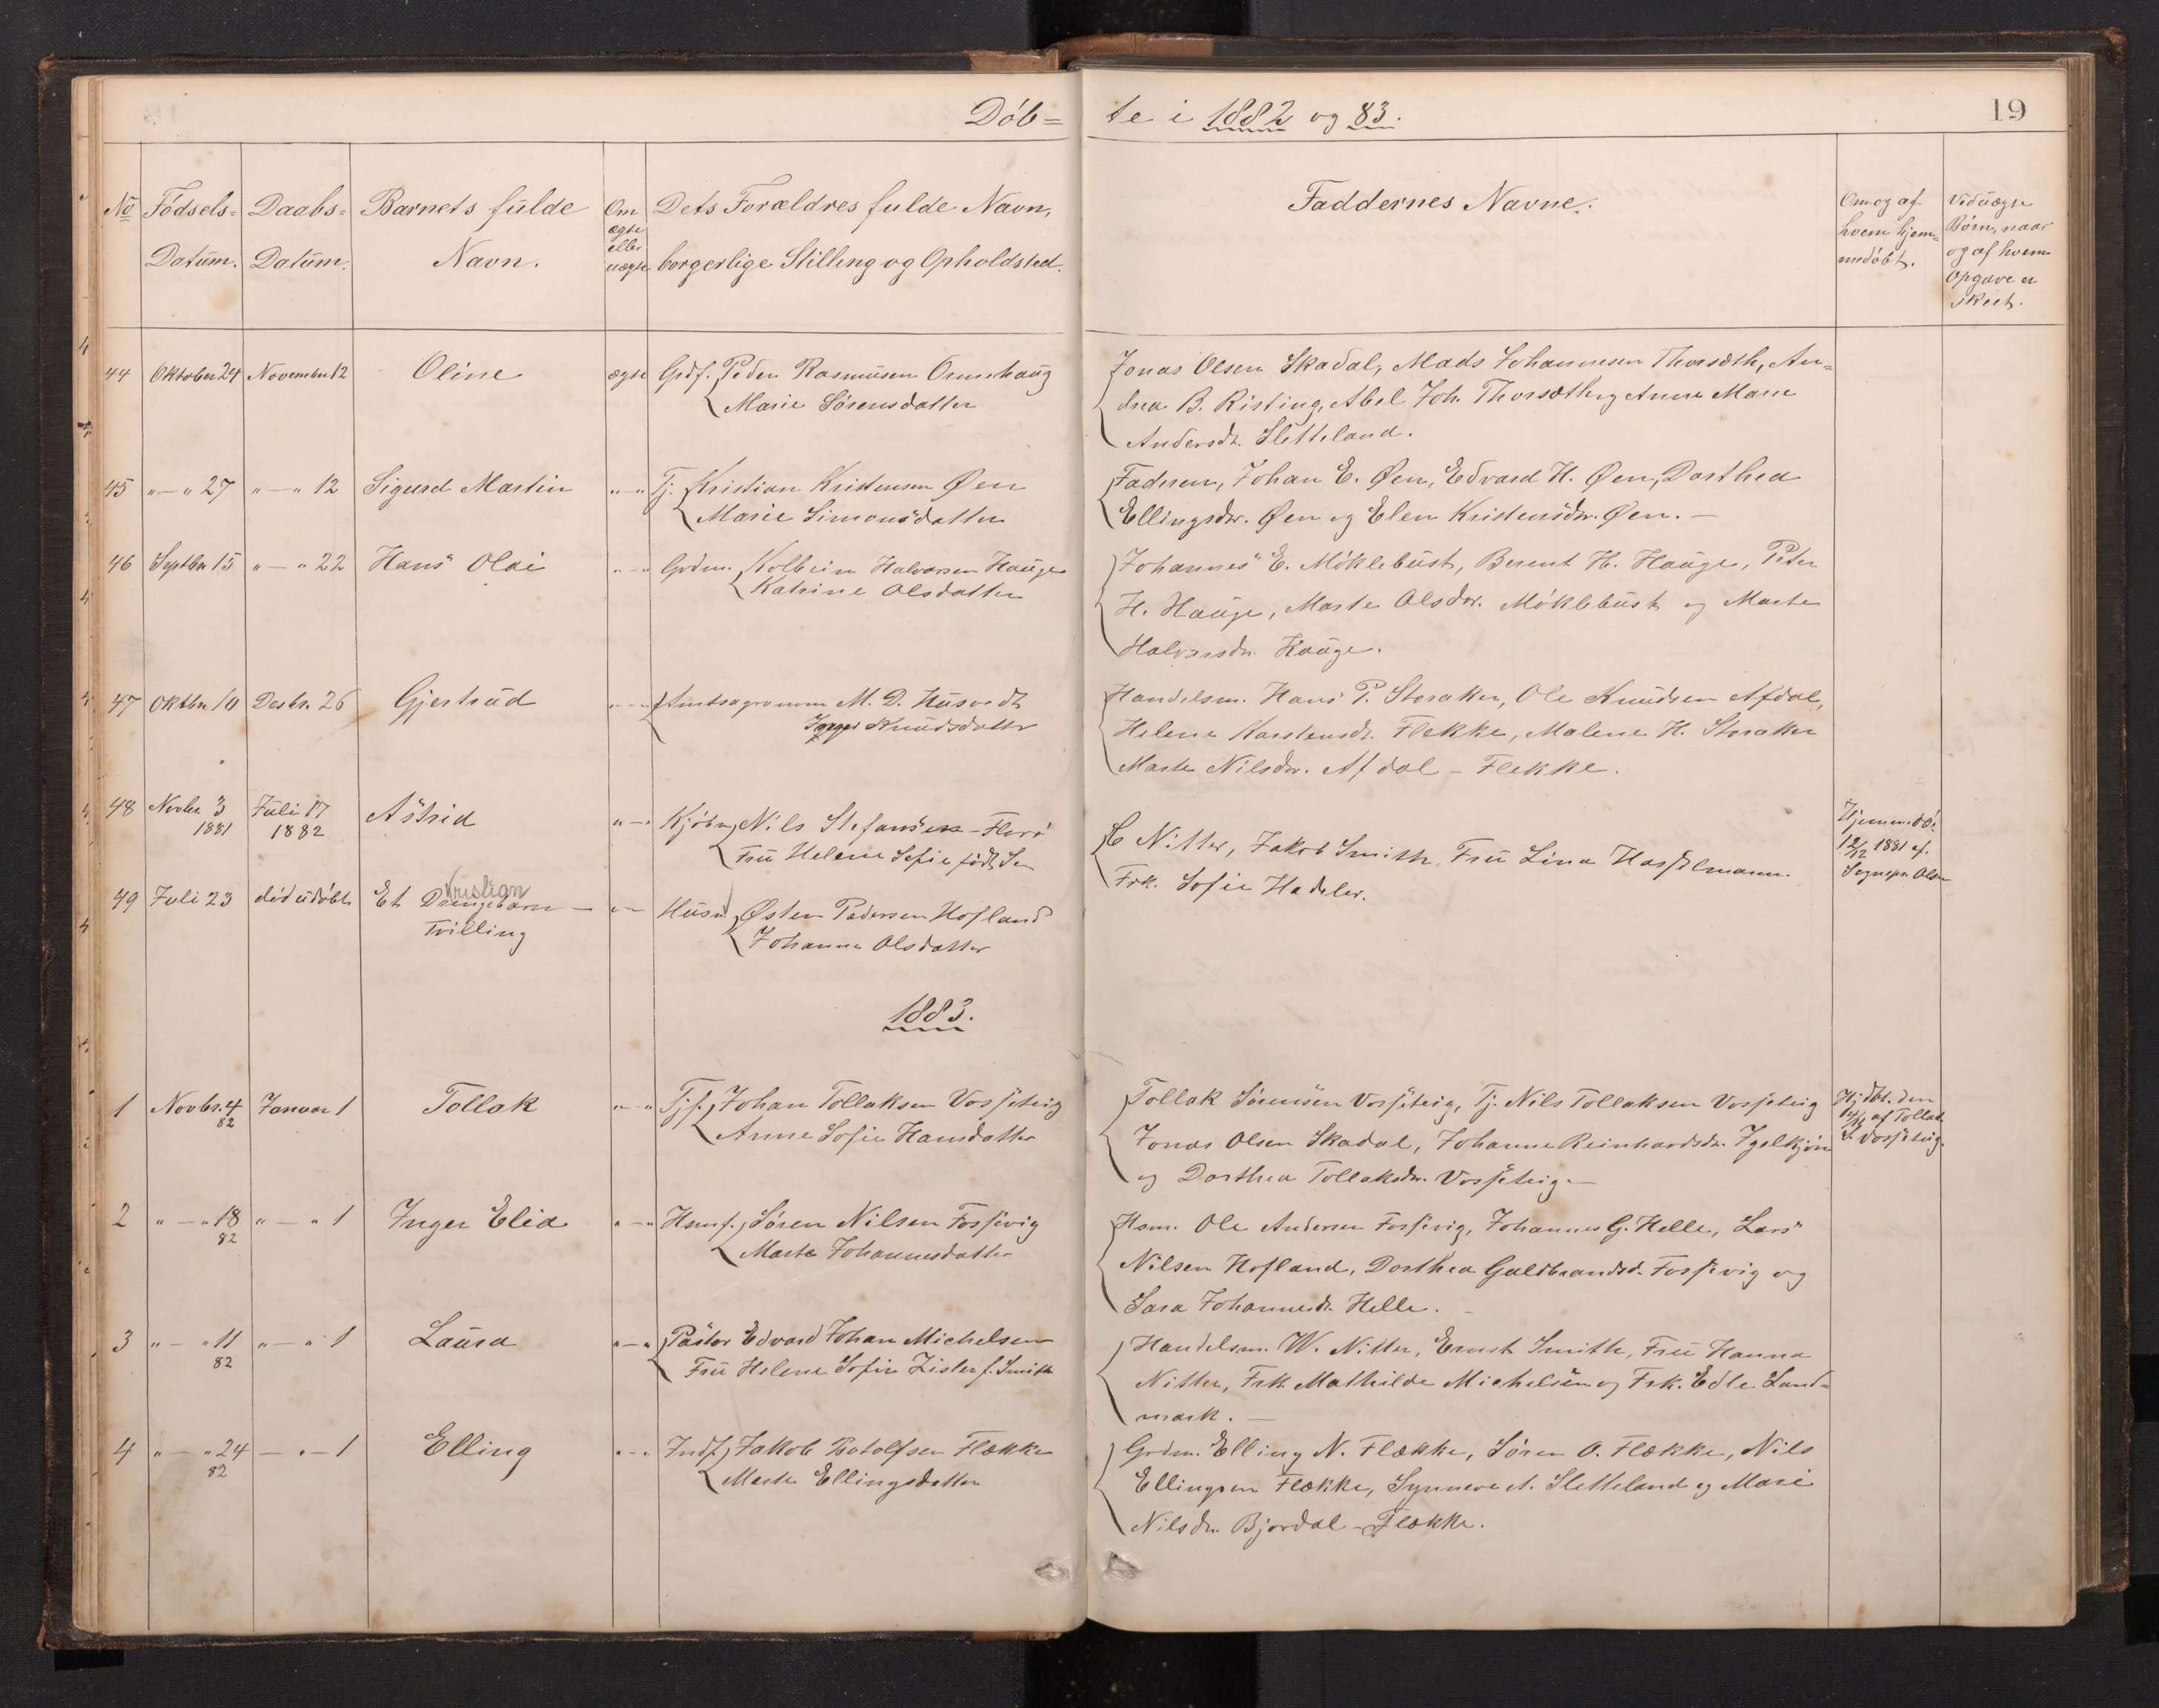 Döb=te i 1882 og 83.
19
No
Födsels-Datum.
Daabs-Datum.
Barnets fulde Navn.
Om ægte eller uægte
Dets Forældres fulde Navn,
borgerlige Stilling og Opholdsted.
Faddernes Navne.
Om og af hvem hjemmedöbt.
Vid uægte Börn, naar og af hvem Opgave er skeet.
44 Oktober 24 November 12 Oline ægte Grdf. Peder Rasmusen Ormehaug
Marie Sörensdatter
Jonas Olsen Skadal, Mads Johannesen Thorsæth, An=
drea B. Risting, Abel Joh. Thorsæth og Anne Marie
Andersdt. Sletteland.
45 "—" 27 "—" 12 Sigurd Martin "—" Tj. Kristian Kristensen Øen
Marie Simonsdatter
Faderen, Johan E. Øen, Edvard H. Øen, Dorthea
Ellingsdtr. Øen og Elen Kristensdtr. Øen.—
46 Septbr 15 "—" 22 Hans Olai "—" Grdm. Kolbein Halvorsen Hauge
Katrine Olsdatter
Johannes E. Möklebust, Berent H. Hauge, Peter
H. Hauge, Marte Olsdtr. Möklebust og Marte
Halvorsdtr. Hauge.
47 Oktbr 10 Desbr. 26 Gjertrud "—" Amtsagronom M. D. Husvedt
Inger Knudsdatter
Handelsm. Hans P. Storaker, Ole Knudsen Afdal,
Helene Karstensdt. Flekke, Malene H. Storaker
Marte Nilsdtr. Afdal - Flekke.
48 Novbr. 3 Juli 17 Astrid "—" Kjöbm. Nils Stefansen - Florö
1881 1882
Fru Helene Sofie födt Sen
C Nitter, Jakob Smith, Fru Lina Hasselmann.
Frk. Sofie Hadeler.
Hjemmedö.
12/12 1881 af.
Sognepr. Olsen
49 Juli 23 död udöbt Et Drengebarn — "— Husm. Østen Pedersen Hofland
Kristian
Tvilling
Johanne Olsdatter
1883.
1 Novbr. 4 Januar 1 Tollak "—" Tjf. Johan Tollaksen Vosseteig
82
Anne Sofie Hansdatter
Tollak Sörensen Vosseteig, Tj. Nils Tollaksen Vosseteig
Jonas Olsen Skadal, Johanne Reinhardsdtr. Igelkjön
og Dorthea Tollaksdtr. Vosseteig.—
Hj. dbt. den
af Tollak
S. Vosseteig.
2 "—" 18 "—" 1 Inger Elida "—" Hsmf. Sören Nilsen Fossevig
82
Marte Johannesdatter
Hsm. Ole Andersen Fossevig, Johannes G. Helle, Lars
Nilsen Hofland, Dorthea Guldbrandsd. Fossevig og
Sara Johannesdt. Helle. -
3 "—" 11 "—" 1 Laura "—" Pastor Edvard Johan Michelsen
82
Fru Helene Sofie Zister f. Smith
Handelsm. W. Nitter, Ernst Smith, Fru Hanna
Nitter, Frk. Mathilde Michelsen og Frk. Edle Land=
mark. —
4 "—" 24 —"— 1 Elling "—" Indf. Jakob Botolfsen Flække
82
Marte Ellingsdatter
Grdm. Elling N. Flække, Sören O. Flække, Nils
Ellingsen Flække, Synneve A. Sletteland og Mari
Nilsdtr. Bjordal - Flække.